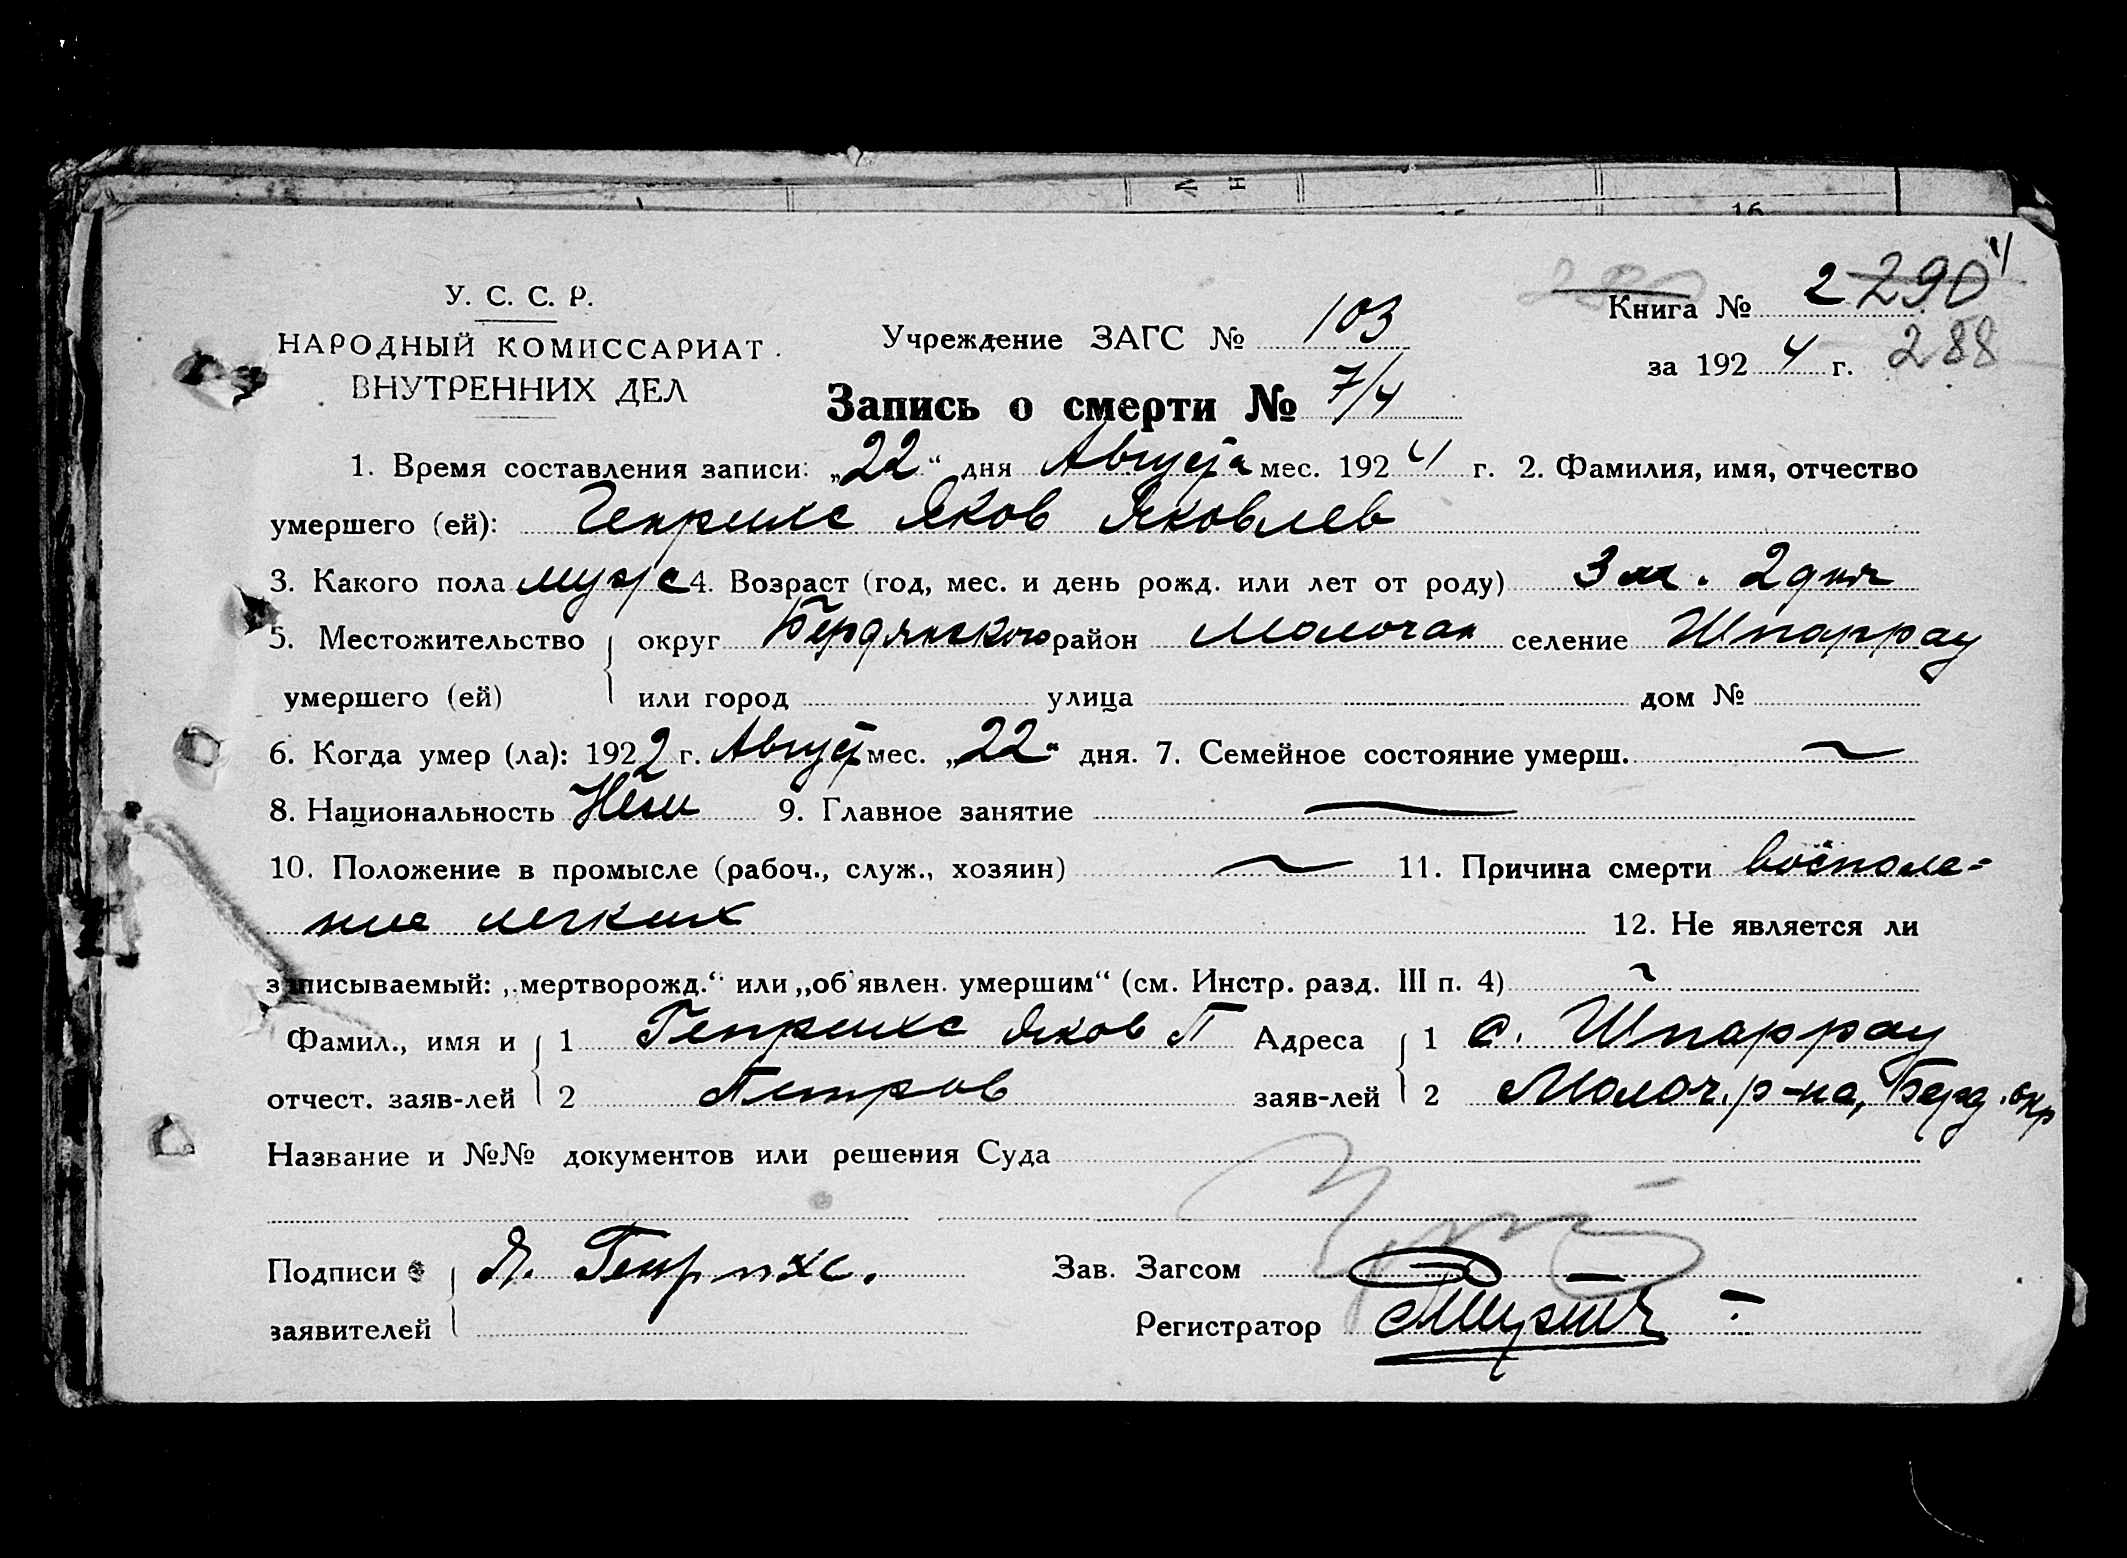 290 4
У. С. С. Р.
НАРОДНЫЙ КОМИССАРИАТ
ВНУТРЕННИХ ДЕЛ
Учреждение ЗАГС № 103
Книга № 2
за 1924 г. 288
Запись о смерти № 7/4
1. Время составления записи: „22“ дня Августа мес. 1924 г. 2. Фамилия, имя, отчество
умершего (ей): Генрихс Яков Яковлев
3. Какого пола мужс 4. Возраст (год, мес. и день рожд. или лет от роду) 3 м. 2 дня
5. Местожительство округ Бердянского район Молочан селение Шпаррау
умершего (ей) или город улица дом №
6. Когда умер (ла): 1922 г. Август мес. „22“ дня. 7. Семейное состояние умерш. ~
8. Национальность Нем 9. Главное занятие —
10. Положение в промысле (рабоч., служ., хозяин) ~ 11. Причина смерти восполе-
ние легких 12. Не является ли
записываемый: „мертворожд.“ или „об'явлен. умершим“ (см. Инстр. разд. III п. 4) ~
Фамил., имя и 1 Генрихс Яков П Адреса 1 с. Шпаррау
отчест. заяв-лей 2 Петров заяв-лей 2 Молоч. р-на, Берд. окр
Название и №№ документов или решения Суда
Подписи Я. Генрихс. Зав. Загсом
заявителей Регистратор